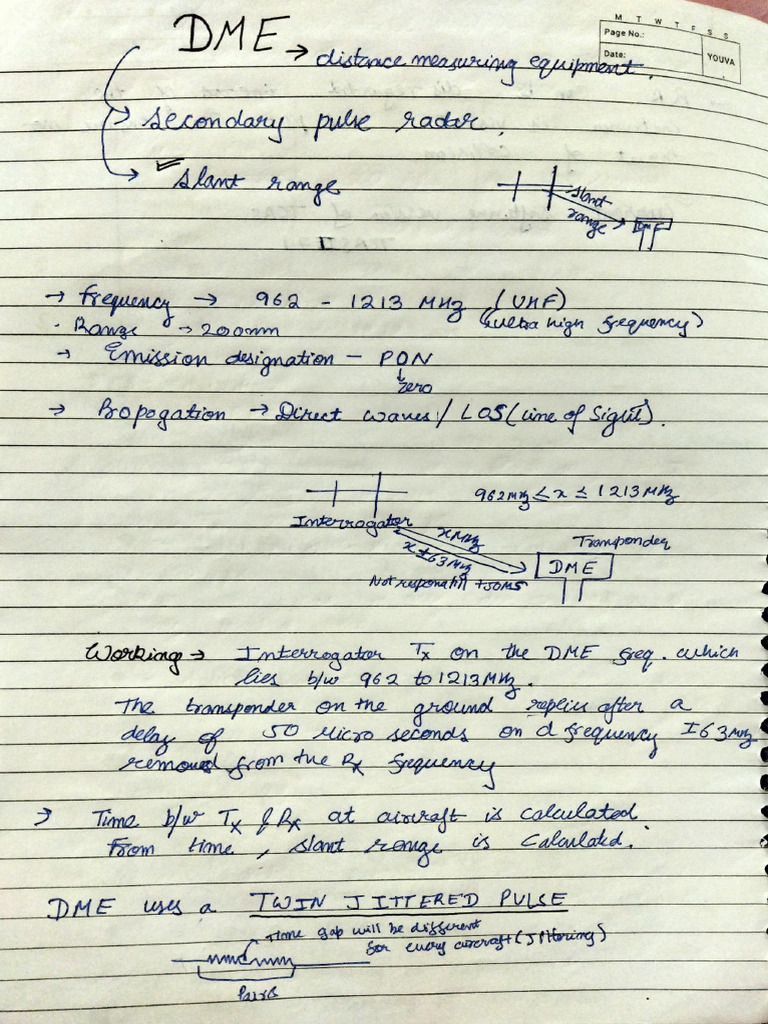 M T W T F S S
Page No.:
Date:
YOUVA
DME → distance measuring equipment.
→ secondary pulse radar.
→ slant range
slant
range
DME
→ frequency → 962 - 1213 MHz (UHF)
(ultra high frequency)
· Range → 200nm
→ Emission designation - PON
↓
zero
→ Propogation → Direct waves / LOS (Line of Sight).
962 MHz ≤ x ≤ 1213 MHz
Interrogator
x MHz
x ± 63 MHz
Transponder
DME
Not respona till +50MS
Working → Interrogator Tx on the DME freq. which
lies b/w 962 to 1213 MHz.
The transponder on the ground replies after a
delay of 50 Micro seconds on a frequency ±63 MHz
removed from the Rx frequency
→ Time b/w Tx & Rx at aircraft is calculated.
From time, slant range is Calculated.
DME uses a TWIN JITTERED PULSE
→ time gap will be different
for every aircraft (Jittering)
Pairs